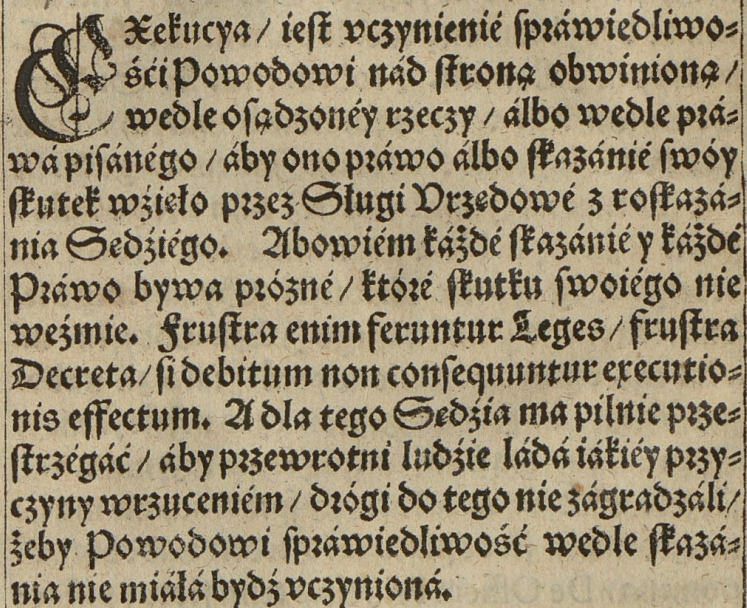 EXekucya / iest vczynienié spráwiedliwo⸗
śći Powodowi nád stroną obwinioną /
wedle osądzonéy rzeczy / álbo wedle prá⸗
wá pisánégo / áby ono práwo álbo skazánié swóy
skutek wźięło przez Sługi Vrzędowé z roskazá⸗
nia Sędźiégo. Abowiém káżdé skazánié y káżdé
Práwo bywa prózné / któré skutku swoiégo nie
weźmie. Frustra enim feruntur Leges / frustra
Decreta / si debitum non consequuntur executio⸗
nis effectum. A dla tego Sędźia ma pilnie prze⸗
strzégáć / áby przewrotni ludźie ládá iákiéy przy⸗
czyny wrzuceniém / drógi do tego nie zágradzáli /
żeby Powodowi spráwiedliwość wedle skazá⸗
nia nie miáłá bydź vczynioná.